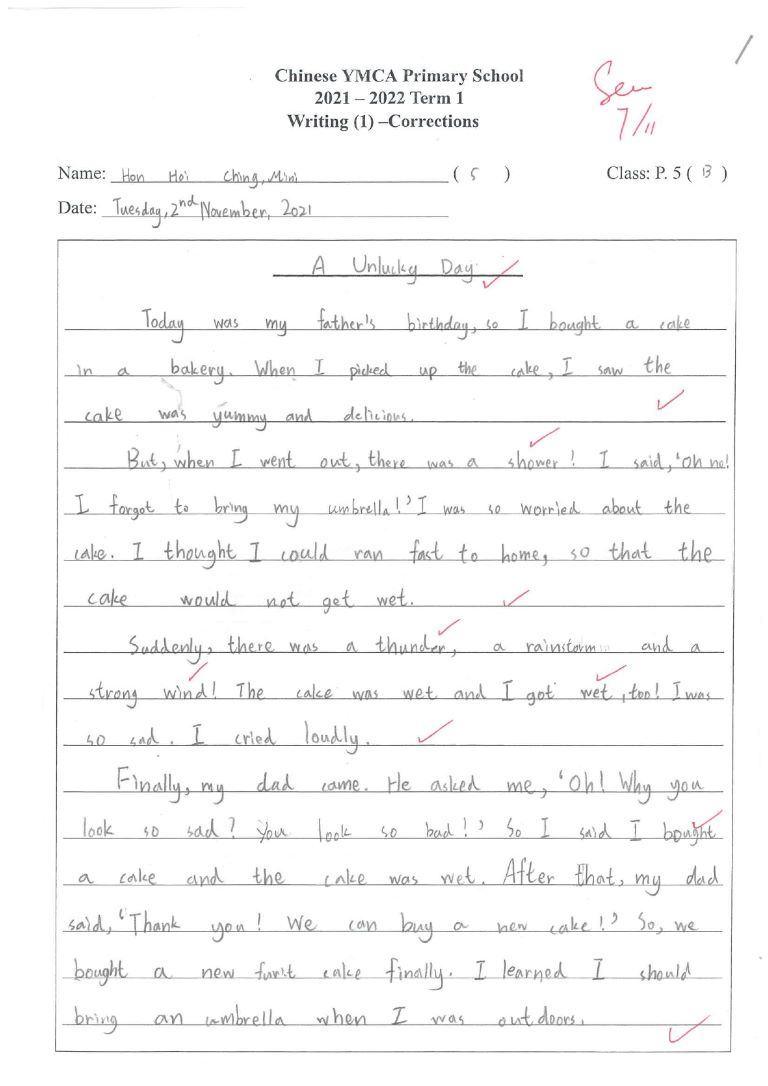 Chinese YMCA Primary School
2021 – 2022 Term 1
Writing (1) –Corrections
7/11
Name: Hon Hoi Ching, Mini ( 5 ) Class: P. 5 ( B )
Date: Tuesday, 2nd November, 2021
A Unlucky Day
Today was my father's birthday, so I bought a cake
in a bakery. When I picked up the cake, I saw the
cake was yummy and delicious.
But, when I went out, there was a shower! I said, 'Oh no!
I forgot to bring my umbrella!' I was so worried about the
cake. I thought I could ran fast to home, so that the
cake would not get wet.
Suddenly, there was a thunder, a rainstorm and a
strong wind! The cake was wet and I got wet, too! I was
so sad. I cried loudly.
Finally, my dad came. He asked me, 'Oh! Why you
look so sad? You look so bad!' So I said I bought
a cake and the cake was wet. After that, my dad
said, 'Thank you! We can buy a new cake!' So, we
bought a new furit cake finally. I learned I should
bring an umbrella when I was outdoors.